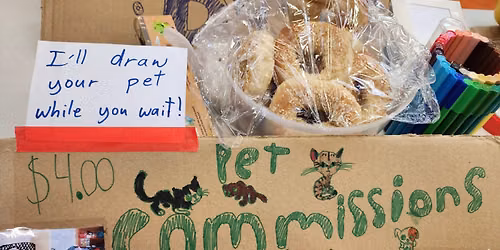 I'll draw
your pet
while you wait!
$4.00
Pet
Commissions